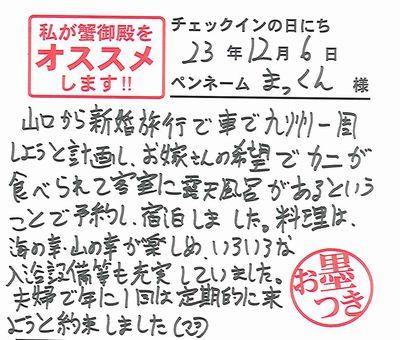 私が蟹御殿を
オススメ
します!!
チェックインの日にち
23年12月6日
ペンネーム まっくん 様
山口から新婚旅行で車で九州一周
しようと計画し、お嫁さんの希望でカニが
食べられて客室に露天風呂があるという
ことで予約し、宿泊しました。料理は、
海の幸・山の幸が楽しめ、いろいろな
入浴設備等も充実していました。
夫婦で年に1回は定期的に来
ようと約束しました
お墨
つき